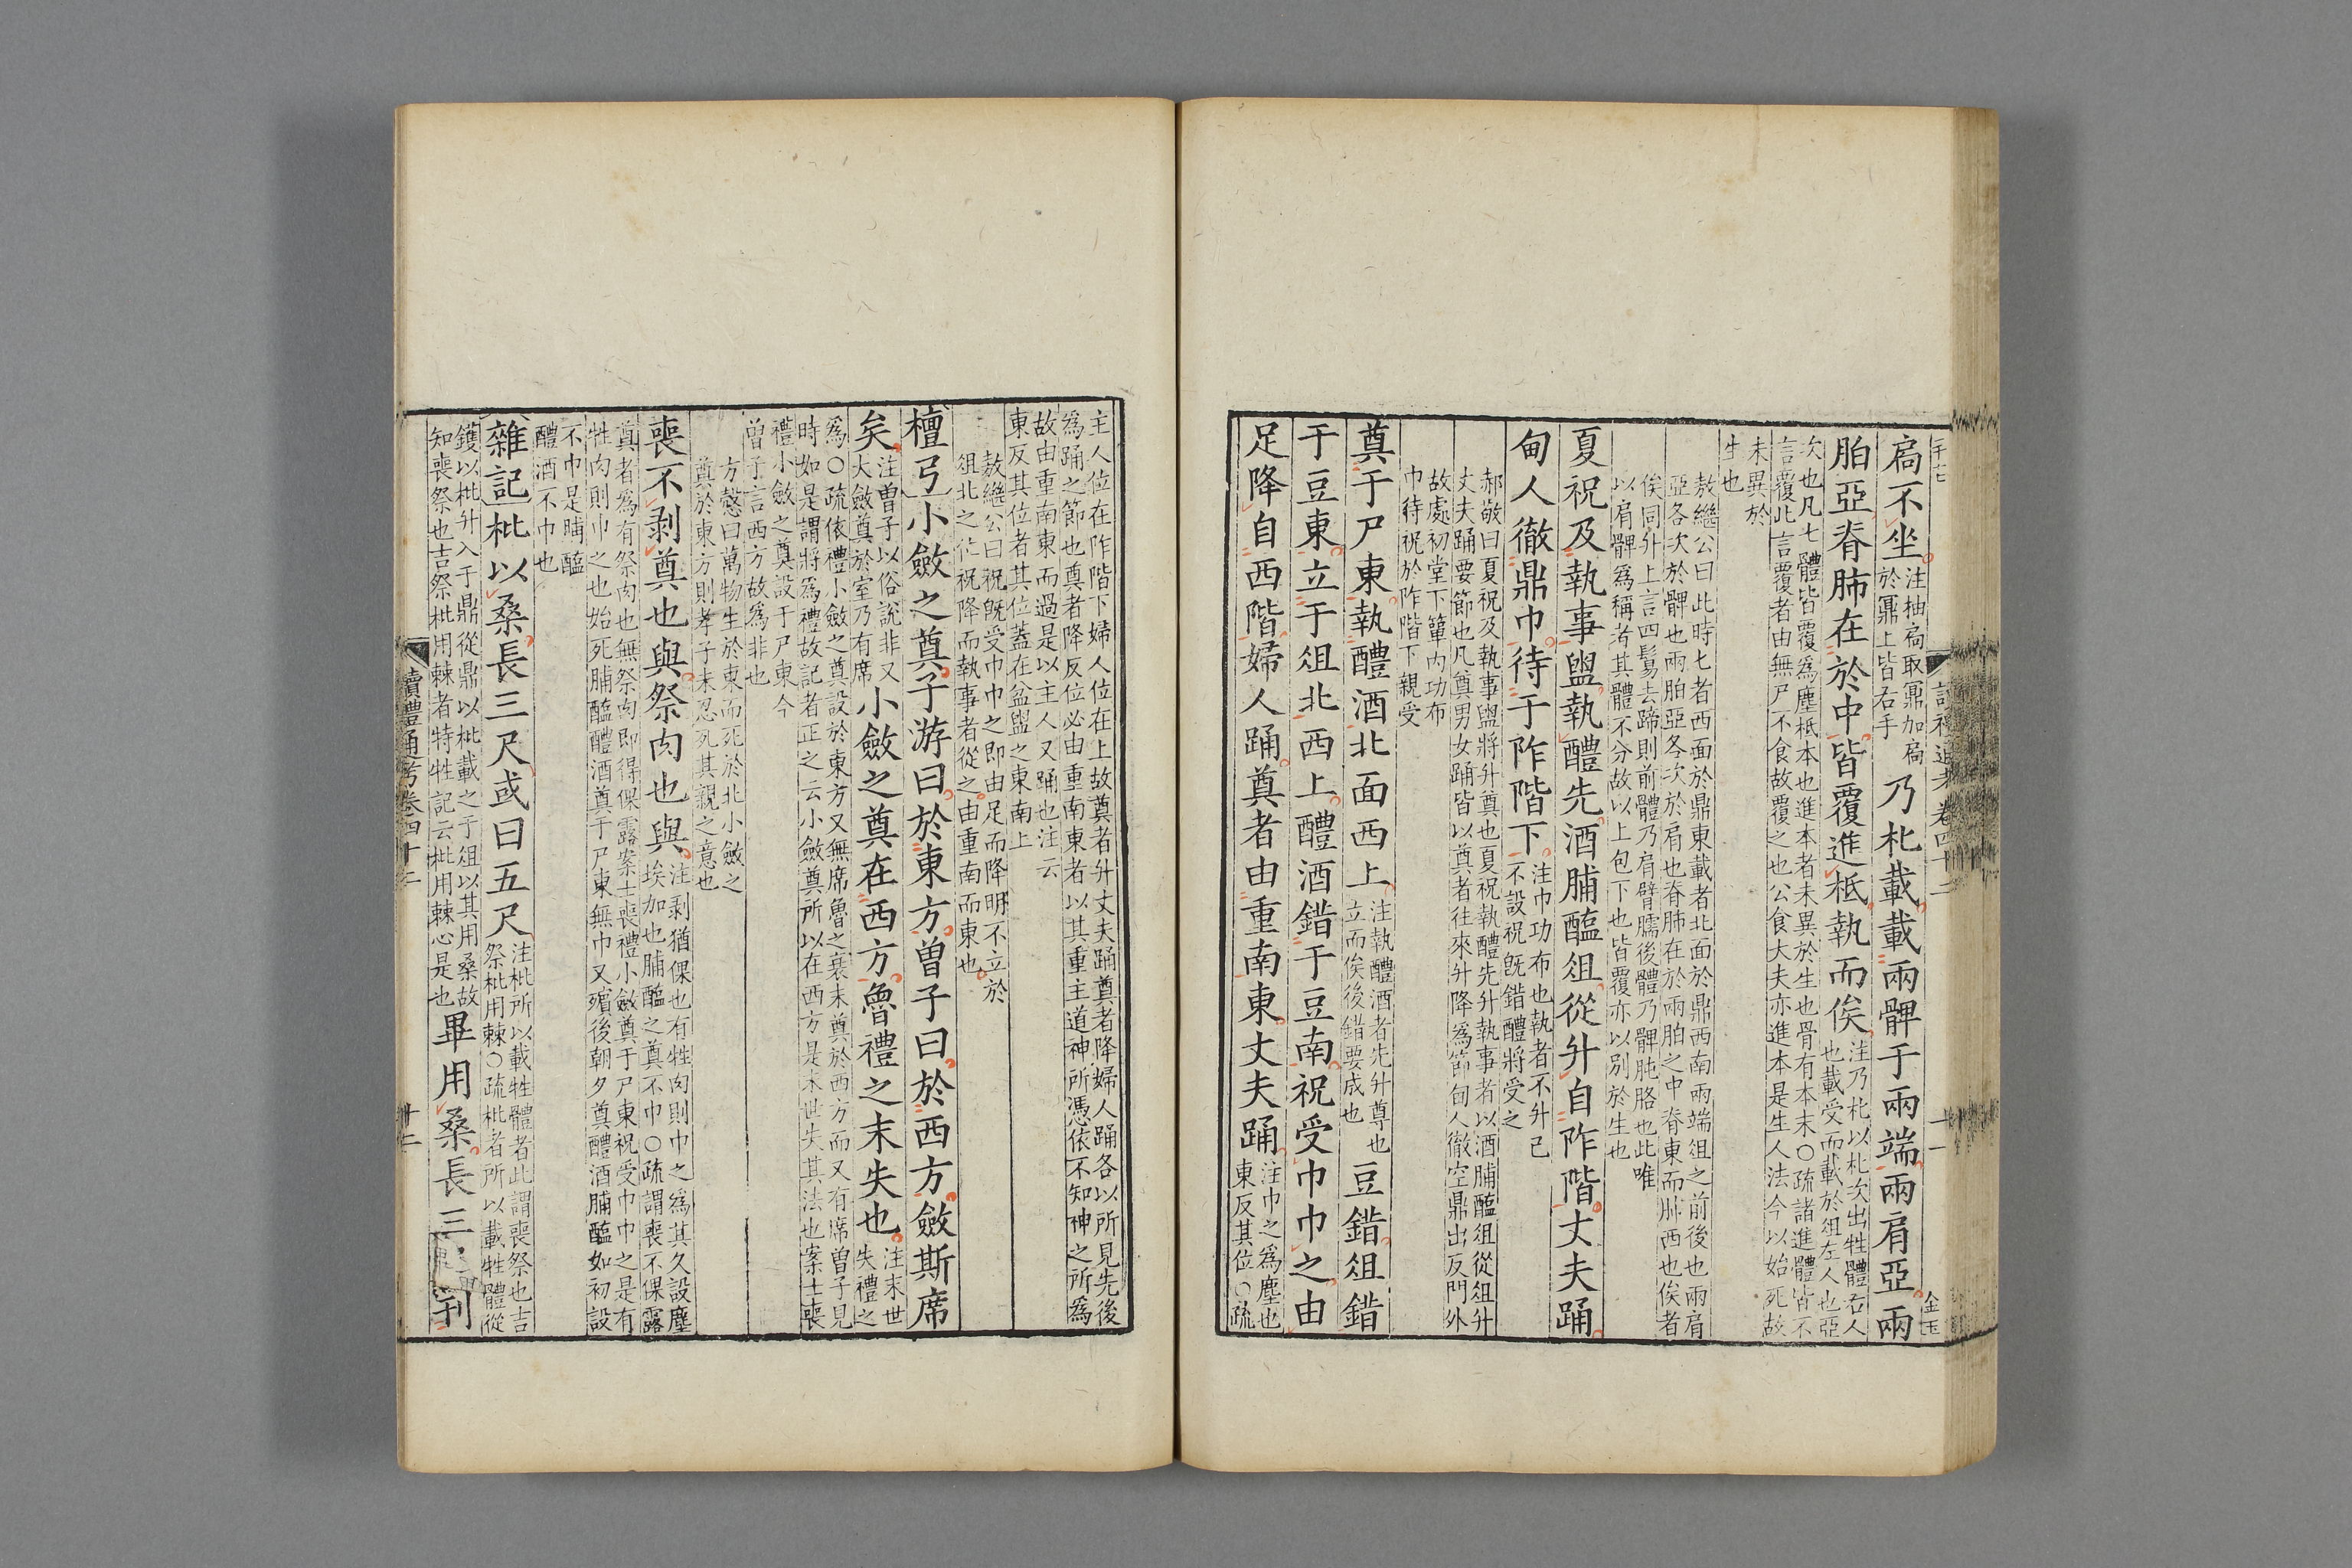 扃不坐注抽扃取鼏加扃
於鼏上皆右手乃朼載載兩髀于兩端兩肩亞兩
胉亞脊肺在於中皆覆進柢執而俟注乃朼以朼次出牲體右人
也載受而載於俎左人也亞
次也凡七體皆覆爲塵柢本也進本者未異於生也骨有本末○疏諸進體皆不
言覆此言覆者由無尸不食故覆之也公食大夫亦進本是生人法今以始死故
未異於
生也
敖繼公曰此時七者西面於鼎東載者北面於鼎西南兩端俎之前後也兩肩
亞各次於髀也兩胉亞各次於肩也脊肺在於兩胉之中脊東而肺西也俟者
俟同升上言四鬄去蹄則前體乃肩臂臑後體乃髀肫胳也此唯
以肩髀爲稱者其體不分故以上包下也皆覆亦以別於生也
夏祝及執事盥執醴先酒脯醢俎從升自阼階丈夫踊
甸人徹鼎巾待于阼階下注巾功布也執者不升已
不設祝旣錯醴將受之
郝敬曰夏祝及執事盥將升奠也夏祝執醴先升執事者以酒脯醢俎從俎升
丈夫踊要節也凡奠男女踊皆以奠者往來升降爲節甸人徹空鼎出反門外
故處初堂下簞內功布
巾待祝於阼階下親受
奠于尸東執醴酒北面西上注執醴酒者先升尊也
立而俟後錯要成也豆錯俎錯
于豆東立于俎北西上醴酒錯于豆南祝受巾巾之由
足降自西階婦人踊奠者由重南東丈夫踊注巾之爲塵也
東反其位○疏
主人位在阼階下婦人位在上故奠者升丈夫踊奠者降婦人踊各以所見先後
爲踊之節也奠者降反位必由重南東者以其重主道神所憑依不知神之所爲
故由重南東而過是以主人又踊也注云
東反其位者其位蓋在盆盥之東南上
敖繼公曰祝旣受巾巾之即由足而降明不立於
俎北之位祝降而執事者從之由重南而東也
檀弓小斂之奠子游曰於東方曾子曰於西方斂斯席
矣注曾子以俗說非又
大斂奠於室乃有席小斂之奠在西方魯禮之末失也注末世
失禮之
爲○疏依禮小斂之奠設於東方又無席魯之衰末奠於西方而又有席曾子見
時如是謂將爲禮故記者正之云小斂奠所以在西方是末世失其法也案士喪
禮小斂之奠設于尸東今
曾子言西方故爲非也
方慤曰萬物生於東而死於北小斂之
奠於東方則孝子未忍死其親之意也
喪不剥奠也與祭肉也與注剥猶倮也有牲肉則巾之爲其久設塵
埃加也脯醢之奠不巾○疏謂喪不倮露
奠者爲有祭肉也無祭肉即得倮露案士喪禮小斂奠于尸東祝受巾巾之是有
牲肉則巾之也始死脯醢醴酒奠于尸東無巾又殯後朝夕奠醴酒脯醢如初設
不巾是脯醢
醴酒不巾也
雜記枇以桑長三尺或曰五尺注枇所以載牲體者此謂喪祭也吉
祭枇用棘○疏枇者所以載牲體從
鑊以枇升入于鼎從鼎以枇載之于俎以其用桑故
知喪祭也吉祭枇用棘者特牲記云枇用棘心是也畢用桑長三刊
讀禮通考卷四十二